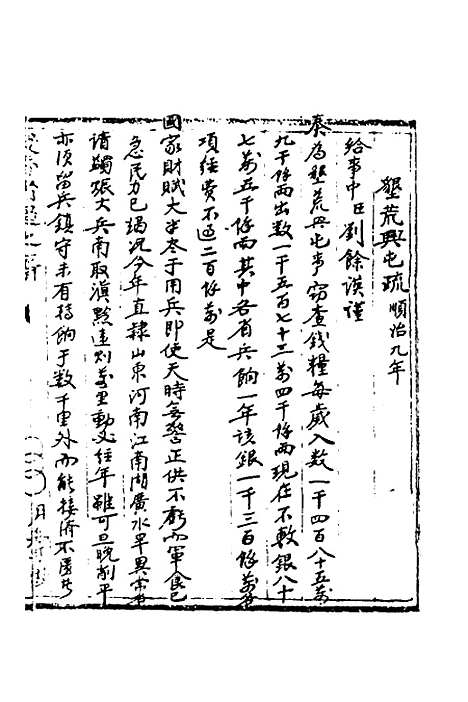 墾荒興屯疏順治九年
給事中臣劉餘謨謹
奏為墾荒興屯事竊查錢糧每歲入數一千四百八十五萬
九千餘兩出數一千五百七十三萬四千餘兩現在不敷銀八十
七萬五千餘兩其中各省兵餉一年該銀一千三百餘萬
項經費不過二百餘萬是
國家財賦大半盡于用兵即使天時無警正供不虧而軍食已
急民力已竭況今年直隸山東河南江南湖廣水旱異常
請蠲賑大兵南取滇黔遠則萬里動必經年雖可旦晚削平
亦須留兵鎮守未有持餉于數千里外而能接濟不匱者